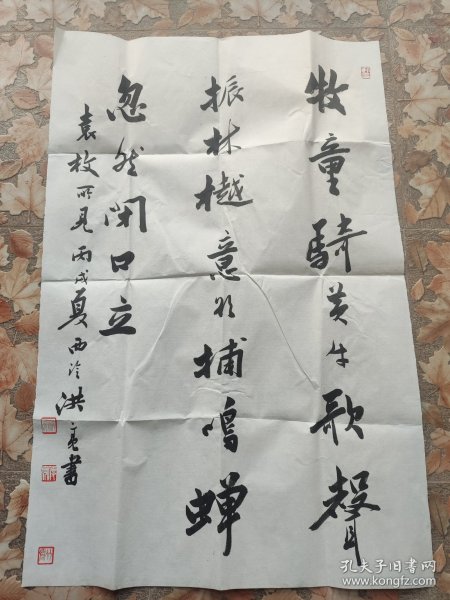 牧童騎黄牛歌聲
振林樾意欲捕鳴蝉
忽然閉口立
袁枚所见丙戌夏西泠洪亮書
孔夫子旧书网
www.kongfz.com